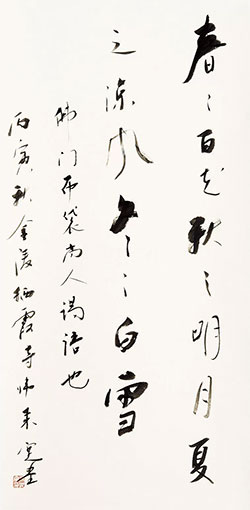 春之百花秋之明月夏
之凉风冬之白雪
佛门布袋尚人谒语也
丙寅秋金陵栖霞寺归来定盦